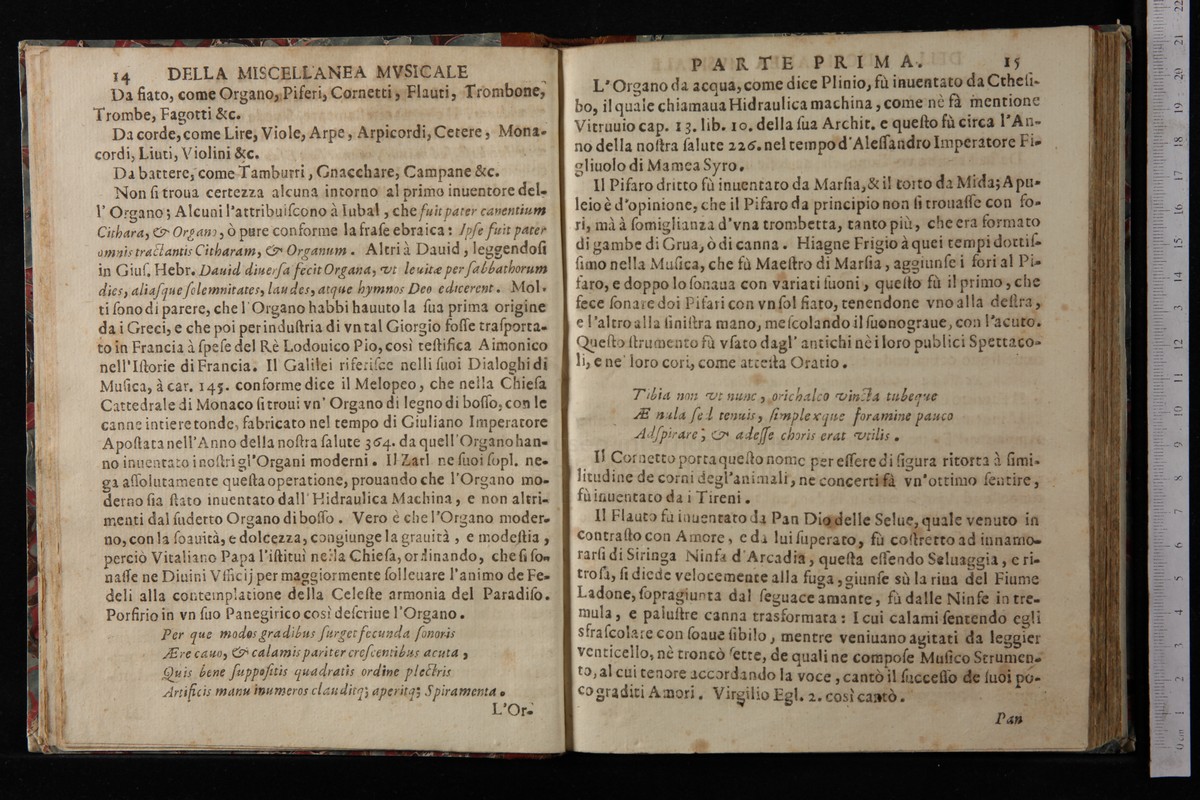 14 DELLA MISCELLANEA MVSICALE
Da fiato, come Organo, Piferi, Cornetti, Flauti, Trombone,
Trombe, Fagotti &c.
Da corde, come Lire, Viole, Arpe, Arpicordi, Cetere, Mona-
cordi, Liuti, Violini &c.
Da battere, come Tamburri, Gnacchare, Campane &c.
Non ſi troua certezza alcuna intorno al primo inuentore del-
l' Organo; Alcuni l'attribuiſcono à Iubal, che fuit pater canentium
Cithara, & Organo, ò pure conforme la fraſe ebraica: Ipſe fuit pater
omnis tractantis Citharam, & Organum. Altri à Dauid, leggendoſi
in Giuſ. Hebr. Dauid diuerſa fecit Organa, vt leuitæ per ſabbathorum
dies, aliaſque ſolemnitates, laudes, atque hymnos Deo edicerent. Mol-
ti ſono di parere, che l'Organo habbi hauuto la ſua prima origine
da i Greci, e che poi per induſtria di vn tal Giorgio foſſe traſporta-
to in Francia à ſpeſe del Rè Lodouico Pio, così teſtifica Aimonico
nell'Iſtorie di Francia. Il Galilei riferiſce nelli ſuoi Dialoghi di
Muſica, à car. 145. conforme dice il Melopeo, che nella Chieſa
Cattedrale di Monaco ſi troui vn' Organo di legno di boſſo, con le
canne intiere tonde, fabricato nel tempo di Giuliano Imperatore
Apoſtata nell'Anno della noſtra ſalute 364. da quell'Organo han-
no inuentato i noſtri gl'Organi moderni. Il Zarl ne ſuoi ſopl. ne-
ga aſſolutamente queſta operatione, prouando che l'Organo mo-
derno ſia ſtato inuentato dall'Hidraulica Machina, e non altri-
menti dal ſudetto Organo di boſſo. Vero è che l'Organo moder-
no, con la ſoauità, e dolcezza, congiunge la grauità, e modeſtia,
perciò Vitaliano Papa l'iſtituì nella Chieſa, ordinando, che ſi ſo-
naſſe ne Diuini Vfficij per maggiormente ſolleuare l'animo de Fe-
deli alla contemplatione della Celeſte armonia del Paradiſo.
Porfirio in vn ſuo Panegirico così deſcriue l'Organo.
Per que modos gradibus ſurget fecunda ſonoris
Ære cauo, & calamis pariter creſcentibus acuta,
Quis bene ſuppoſitis quadratis ordine plectris
Artificis manu inumeros clauditq; aperitq; Spiramenta.
L'Or-
PARTE PRIMA. 15
L'Organo da acqua, come dice Plinio, fù inuentato da Ctheſi-
bo, il quale chiamaua Hidraulica machina, come nè fà mentione
Vitruuio cap. 13. lib. 10. della ſua Archit. e queſto fù circa l'An-
no della noſtra ſalute 226. nel tempo d'Aleſſandro Imperatore Fi-
gliuolo di Mamea Syro.
Il Pifaro dritto fù inuentato da Marſia, & il torto da Mida; Apu-
leio è d'opinione, che il Pifaro da principio non ſi trouaſſe con fo-
ri, mà à ſomiglianza d'vna trombetta, tanto più, che era formato
di gambe di Grua, ò di canna. Hiagne Frigio à quei tempi dottiſ-
ſimo nella Muſica, che fù Maeſtro di Marſia, aggiunſe i fori al Pi-
faro, e doppo lo ſonaua con variati ſuoni, queſto fù il primo, che
fece ſonare doi Pifari con vn ſol fiato, tenendone vno alla deſtra,
e l'altro alla ſiniſtra mano, meſcolando il ſuono graue, con l'acuto.
Queſto ſtrumento fù vſato dagl' antichi nè i loro publici Spettaco-
li, e ne' loro cori, come atteſta Oratio.
Tibia non vt nunc, orichalco vincta tubeque
Æ nula ſed tenuis, ſimplexque foramine pauco
Adſpirare, & adeſſe choris erat vtilis.
Il Cornetto porta queſto nome per eſſere di figura ritorta à ſimi-
litudine de corni degl'animali, ne concerti fà vn'ottimo ſentire,
fù inuentato da i Tireni.
Il Flauto fù inuentato da Pan Dio delle Selue, quale venuto in
contraſto con Amore, e da lui ſuperato, fù coſtretto ad innamo-
rarſi di Siringa Ninfa d'Arcadia, queſta eſſendo Seluaggia, e ri-
troſa, ſi diede velocemente alla fuga, giunſe sù la riua del Fiume
Ladone, ſopragiunta dal ſeguace amante, fù dalle Ninfe in tre-
mula, e paluſtre canna trasformata: I cui calami ſentendo egli
sfraſcolare con ſoaue ſibilo, mentre veniuano agitati da leggier
venticello, nè troncò ſette, de quali ne compoſe Muſico Strumen-
to, al cui tenore accordando la voce, cantò il ſucceſſo de ſuoi po-
co graditi Amori. Virgilio Egl. 2. così cantò.
Pan